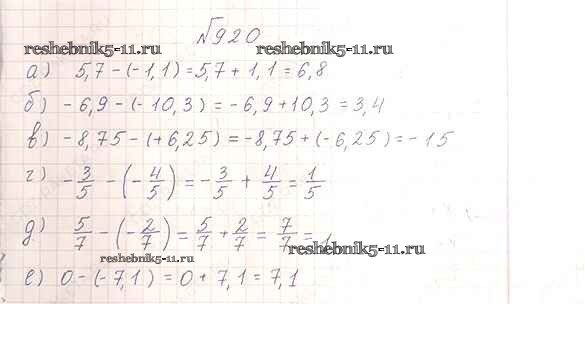 №920
reshebnik5-11.ru reshebnik5-11.ru
а) 5,7 - (-1,1) = 5,7 + 1,1 = 6,8
б) - 6,9 - (- 10,3) = - 6,9 + 10,3 = 3,4
в) - 8,75 - (+ 6,25) = - 8,75 + (- 6,25) = - 15
г) - 3/5 - (- 4/5) = - 3/5 + 4/5 = 1/5
д) 5/7 - (- 2/7) = 5/7 + 2/7 = 7/7 = 1
reshebnik5-11.ru reshebnik5-11.ru
е) 0 - (- 7,1) = 0 + 7,1 = 7,1